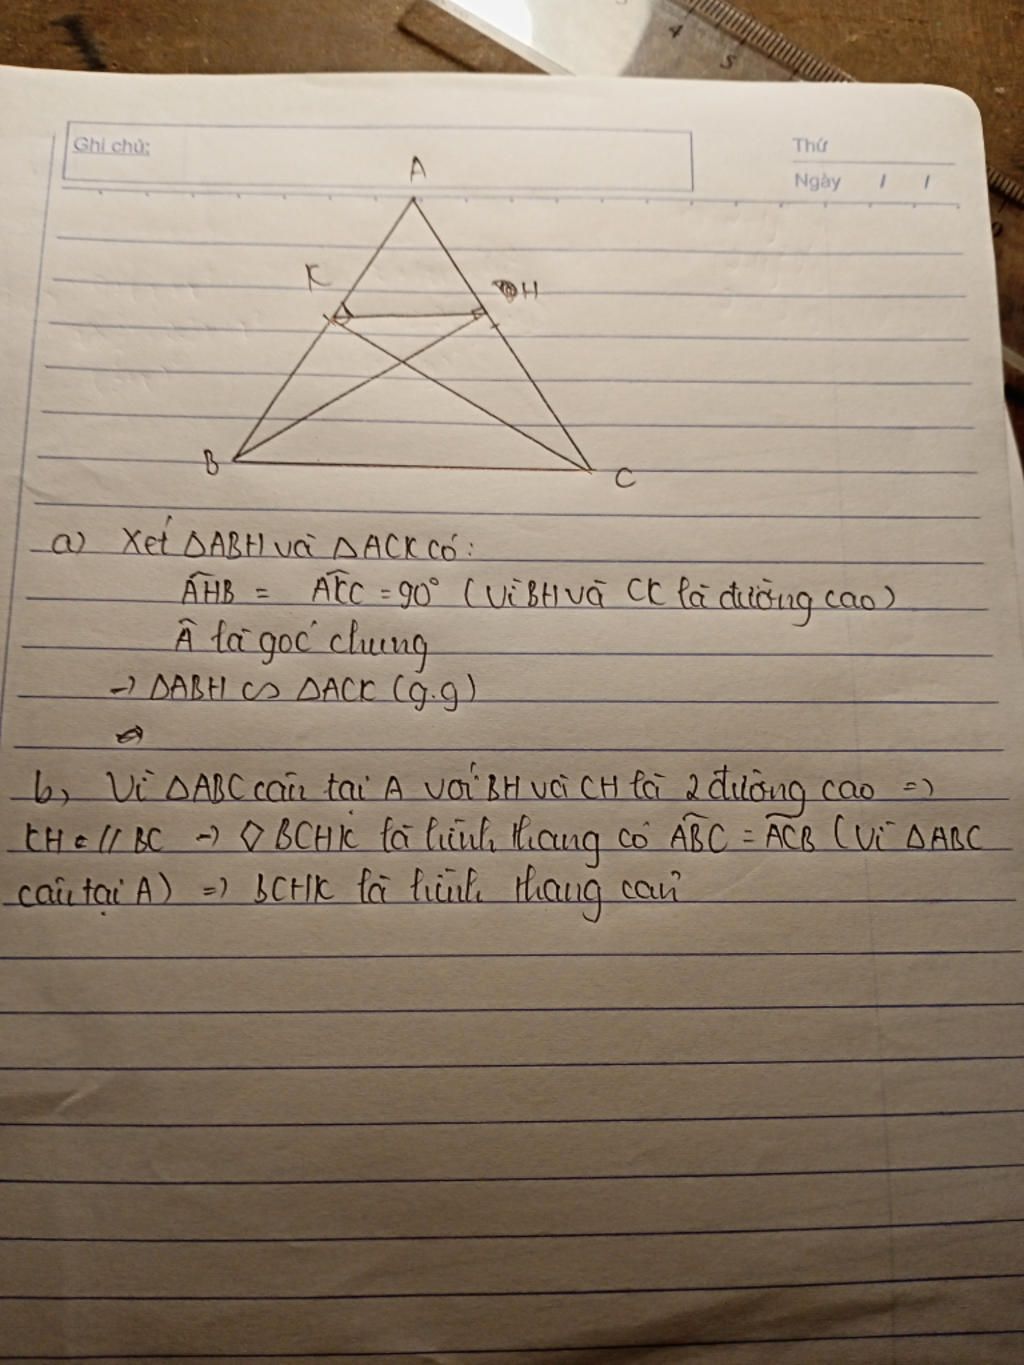 4 5
Ghi chú:
Thứ
Ngày / /
A
K
H
B
C
a) Xét ΔABH và ΔACK có:
AHB = AKC = 90° (Vì BH và CK là đường cao)
 là góc chung
→ ΔABH ∽ ΔACK (g.g)
b, Vì ΔABC cân tại A với BH và CH là 2 đường cao =>
KH // BC → ◇ BCHK là hình thang có ABC = ACB (Vì ΔABC
cân tại A) => BCHK là hình thang cân